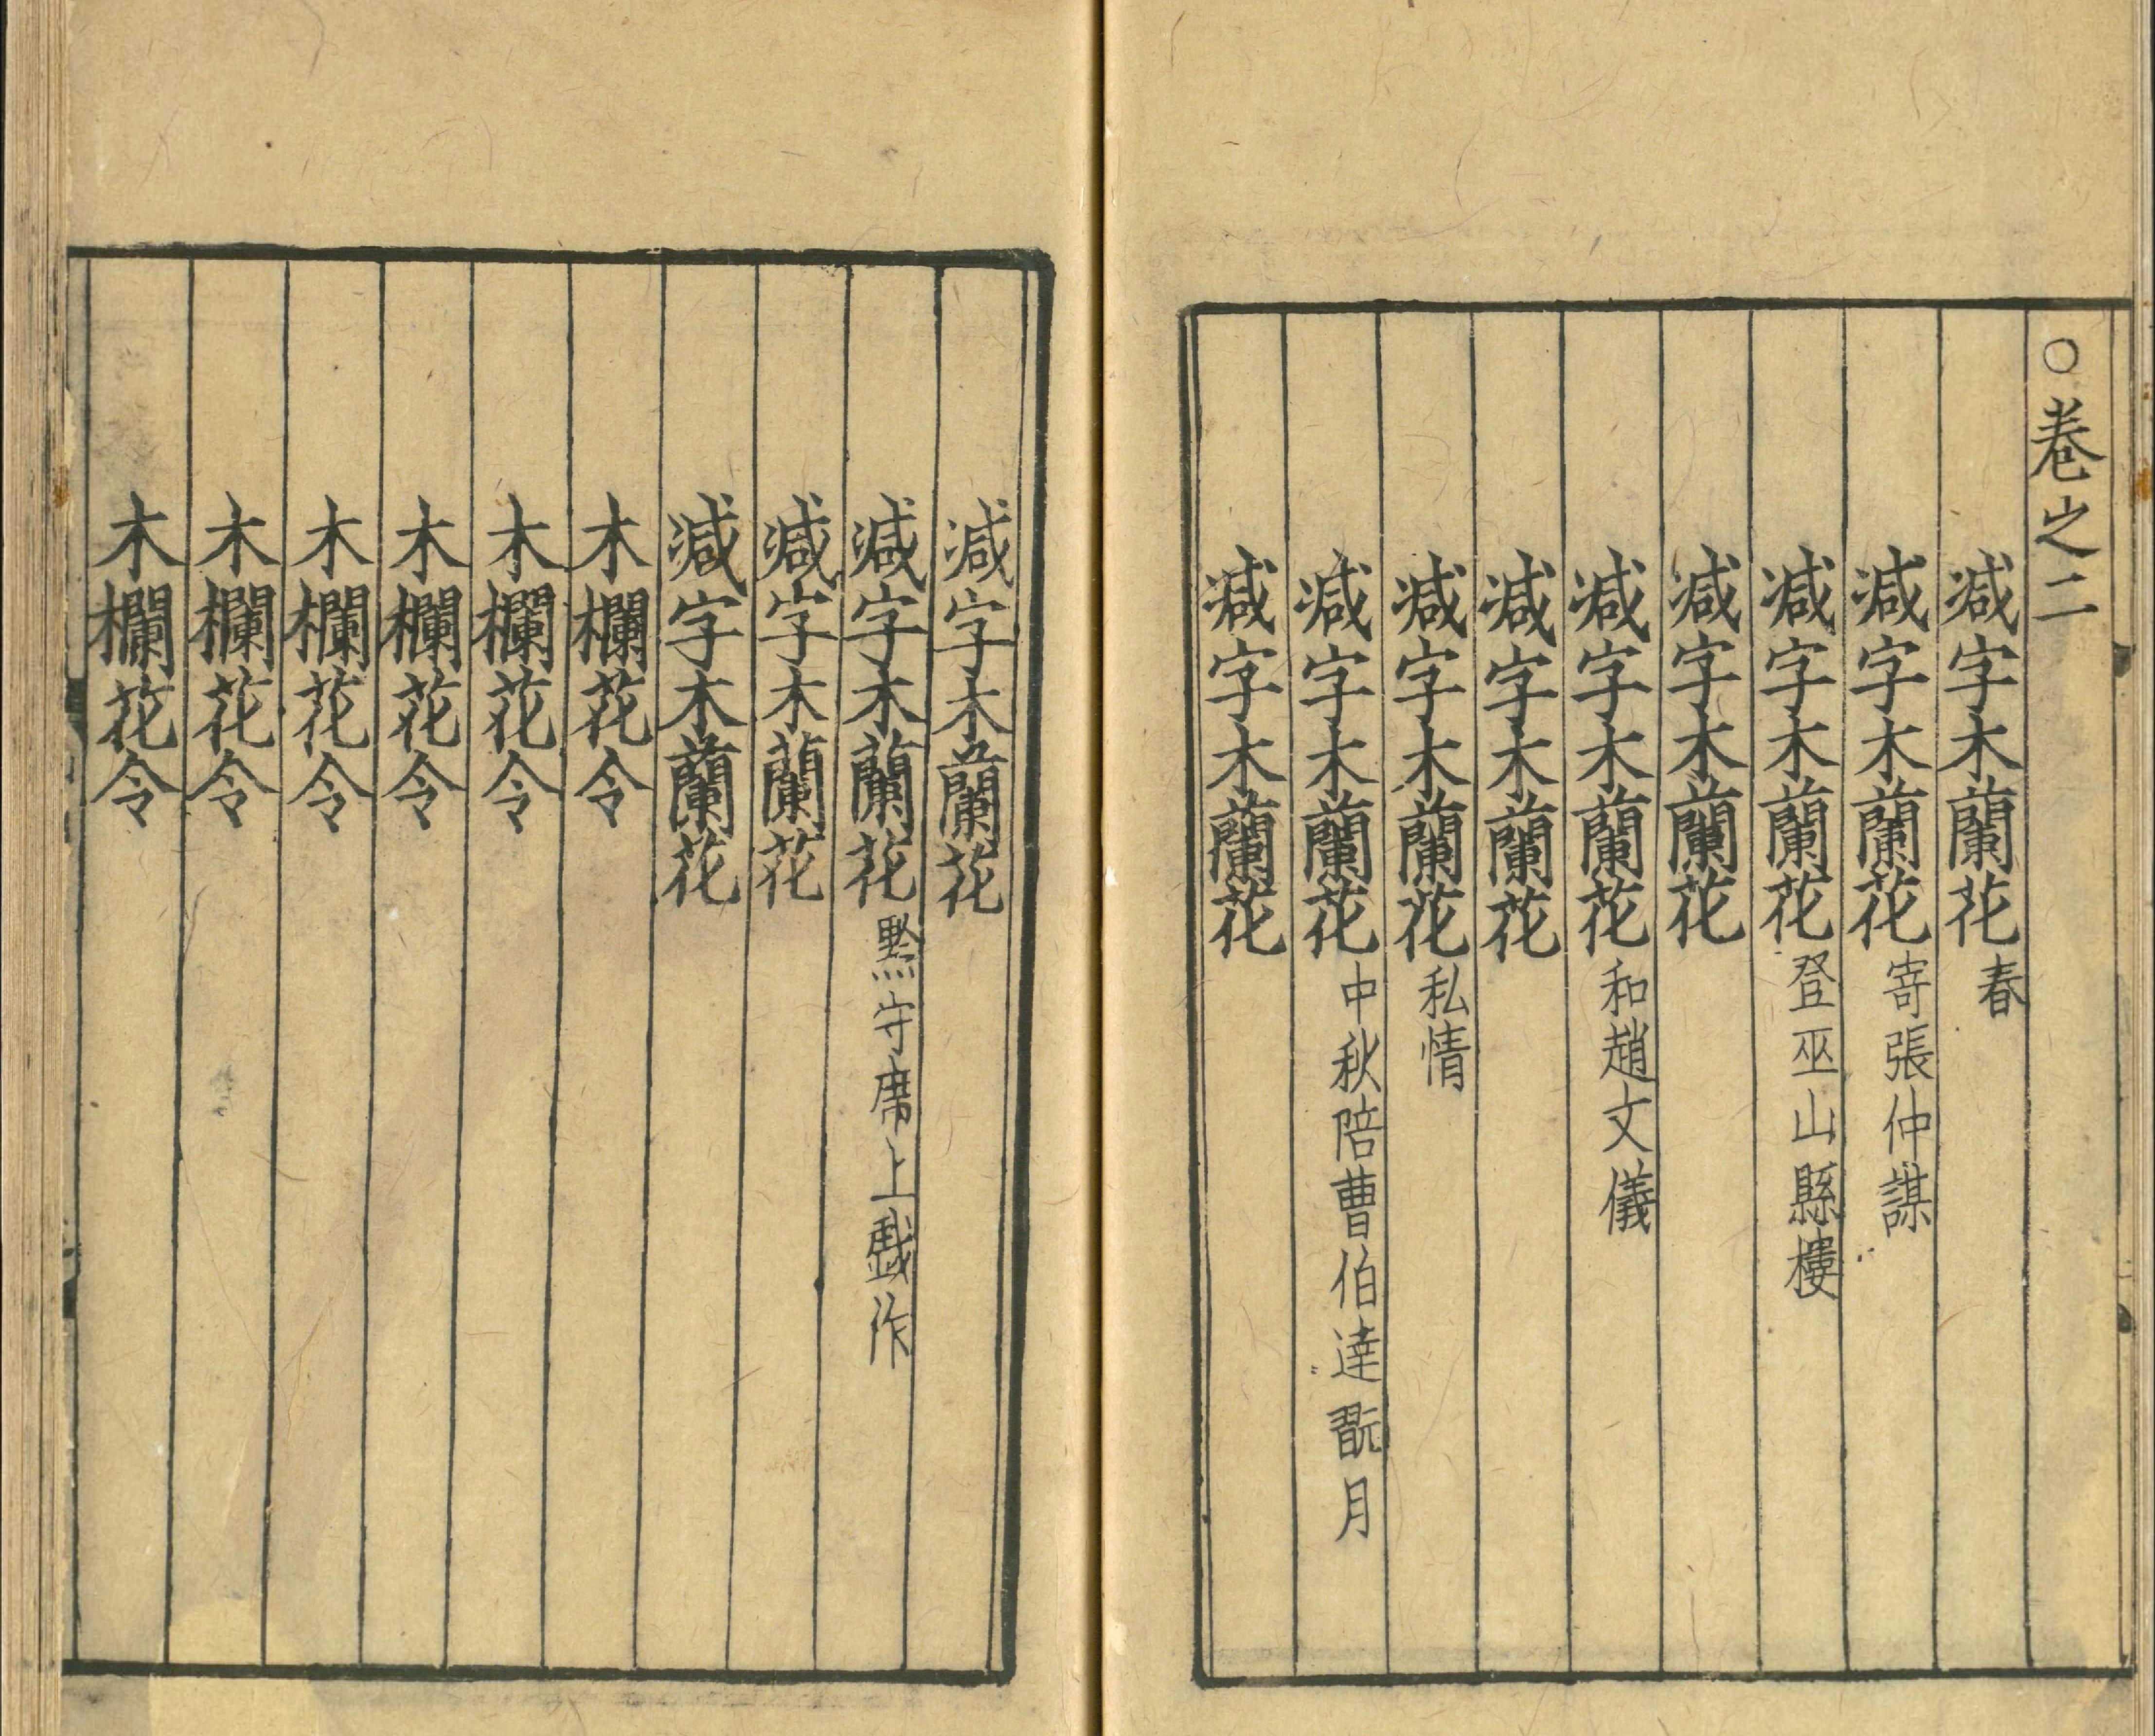 ○卷之二
减字木蘭花春
减字木蘭花寄張仲謀
减字木蘭花登巫山縣樓
减字木蘭花
减字木蘭花和趙文儀
减字木蘭花
减字木蘭花私情
减字木蘭花中秋陪曹伯達翫月
减字木蘭花
减字木蘭花
减字木蘭花黔守席上戯作
减字木蘭花
减字木蘭花
木欄花令
木欄花令
木欄花令
木欄花令
木欄花令
木欄花令